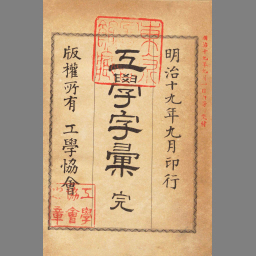 明治十九年九月印行
工學字彙 完
版權所有 工學協會
工學
協會
章